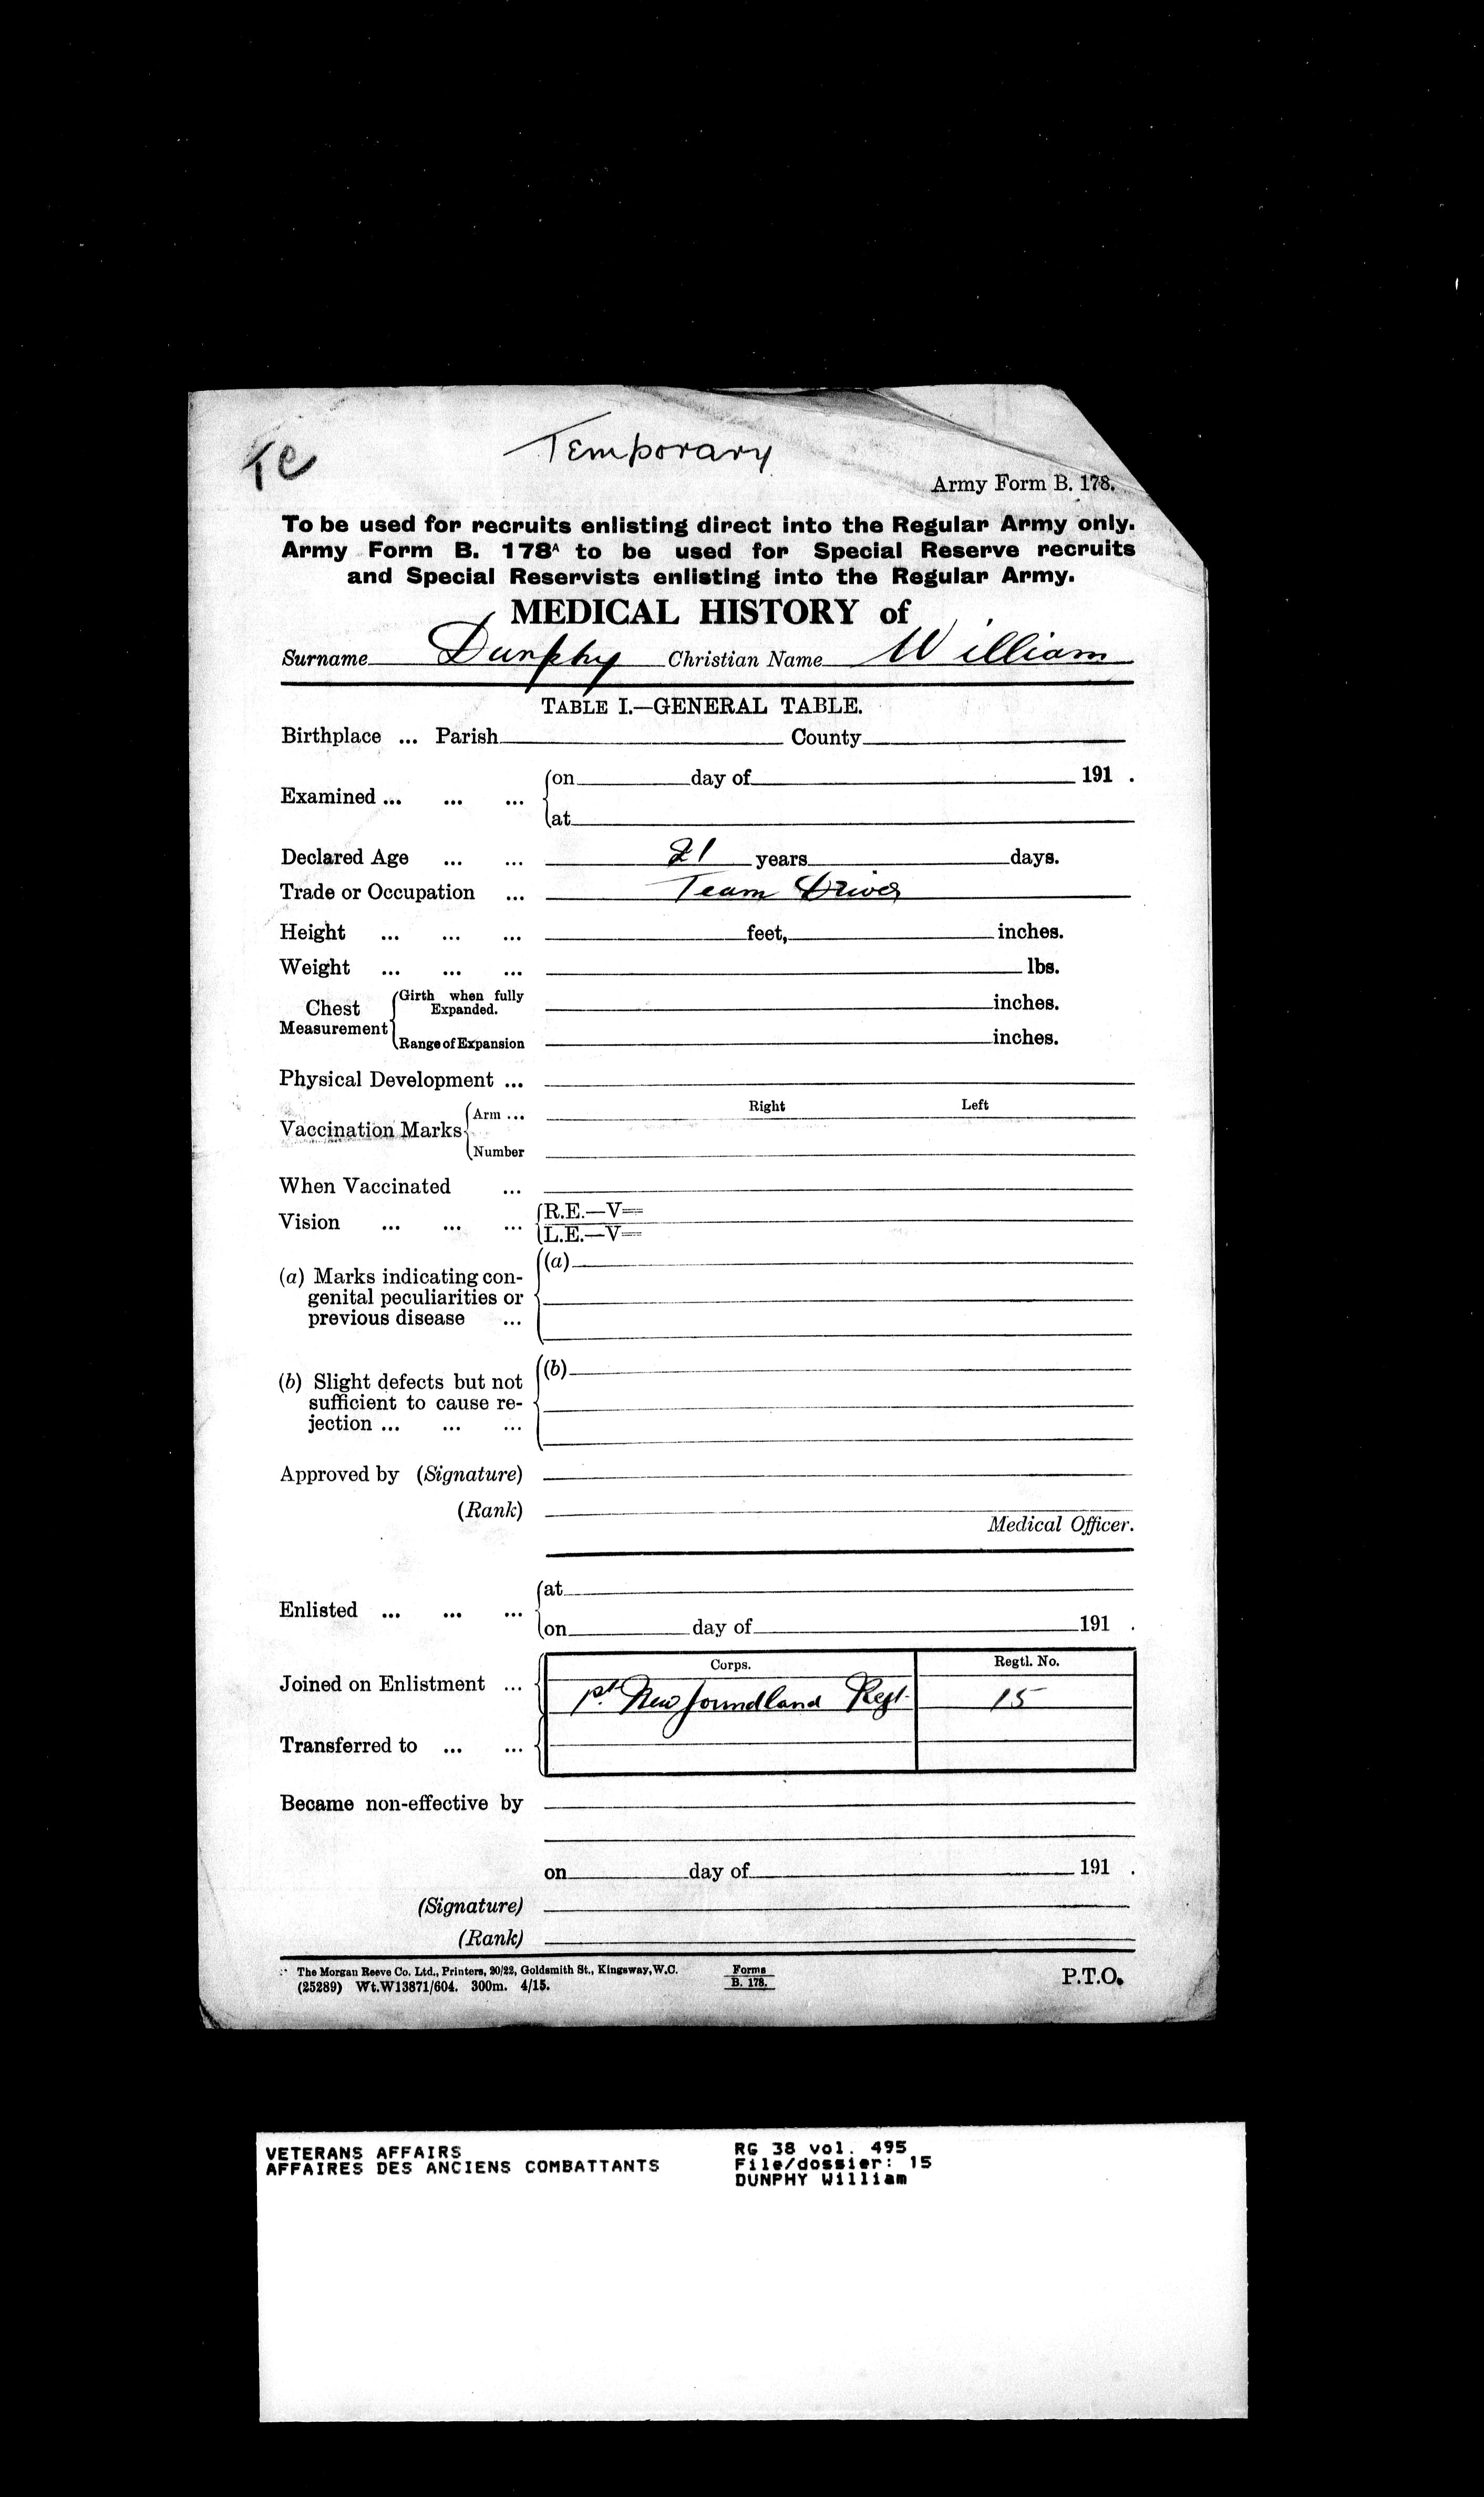 Temporary
Army Form B. 178.
To be used for recruits enlisting direct into the Regular Army only.
Army Form B. 178A to be used for Special Reserve recruits
and Special Reservists enlisting into the Regular Army.
MEDICAL HISTORY of
Surname Dunphy Christian Name William
TABLE I.—GENERAL TABLE.
Birthplace ... Parish County
Examined ... ... ... on day of 191 .
at
Declared Age ... ... 21 years days.
Trade or Occupation ... Team Driver
Height ... ... ... feet, inches.
Weight ... ... ... lbs.
Chest Measurement Girth when fully Expanded. inches.
Range of Expansion inches.
Physical Development ...
Right Left
Vaccination Marks Arm ...
Number
When Vaccinated ...
Vision ... ... ... R.E.—V=
L.E.—V=
(a) Marks indicating con- (a)
genital peculiarities or
previous disease ...
(b) Slight defects but not (b)
sufficient to cause re-
jection ... ... ...
Approved by (Signature)
(Rank)
Medical Officer.
Enlisted ... ... ... at
on day of 191 .
Corps. Regtl. No.
Joined on Enlistment ... 1st Newfoundland Regt. 15
Transferred to ... ...
Became non-effective by
on day of 191 .
(Signature)
(Rank)
The Morgan Reeve Co. Ltd., Printers, 20/22, Goldsmith St., Kingsway, W.C.
(25289) Wt.W13871/604. 300m. 4/15.
Forms
B. 178.
P.T.O.
VETERANS AFFAIRS
AFFAIRES DES ANCIENS COMBATTANTS
RG 38 vol. 495
File/dossier: 15
DUNPHY William